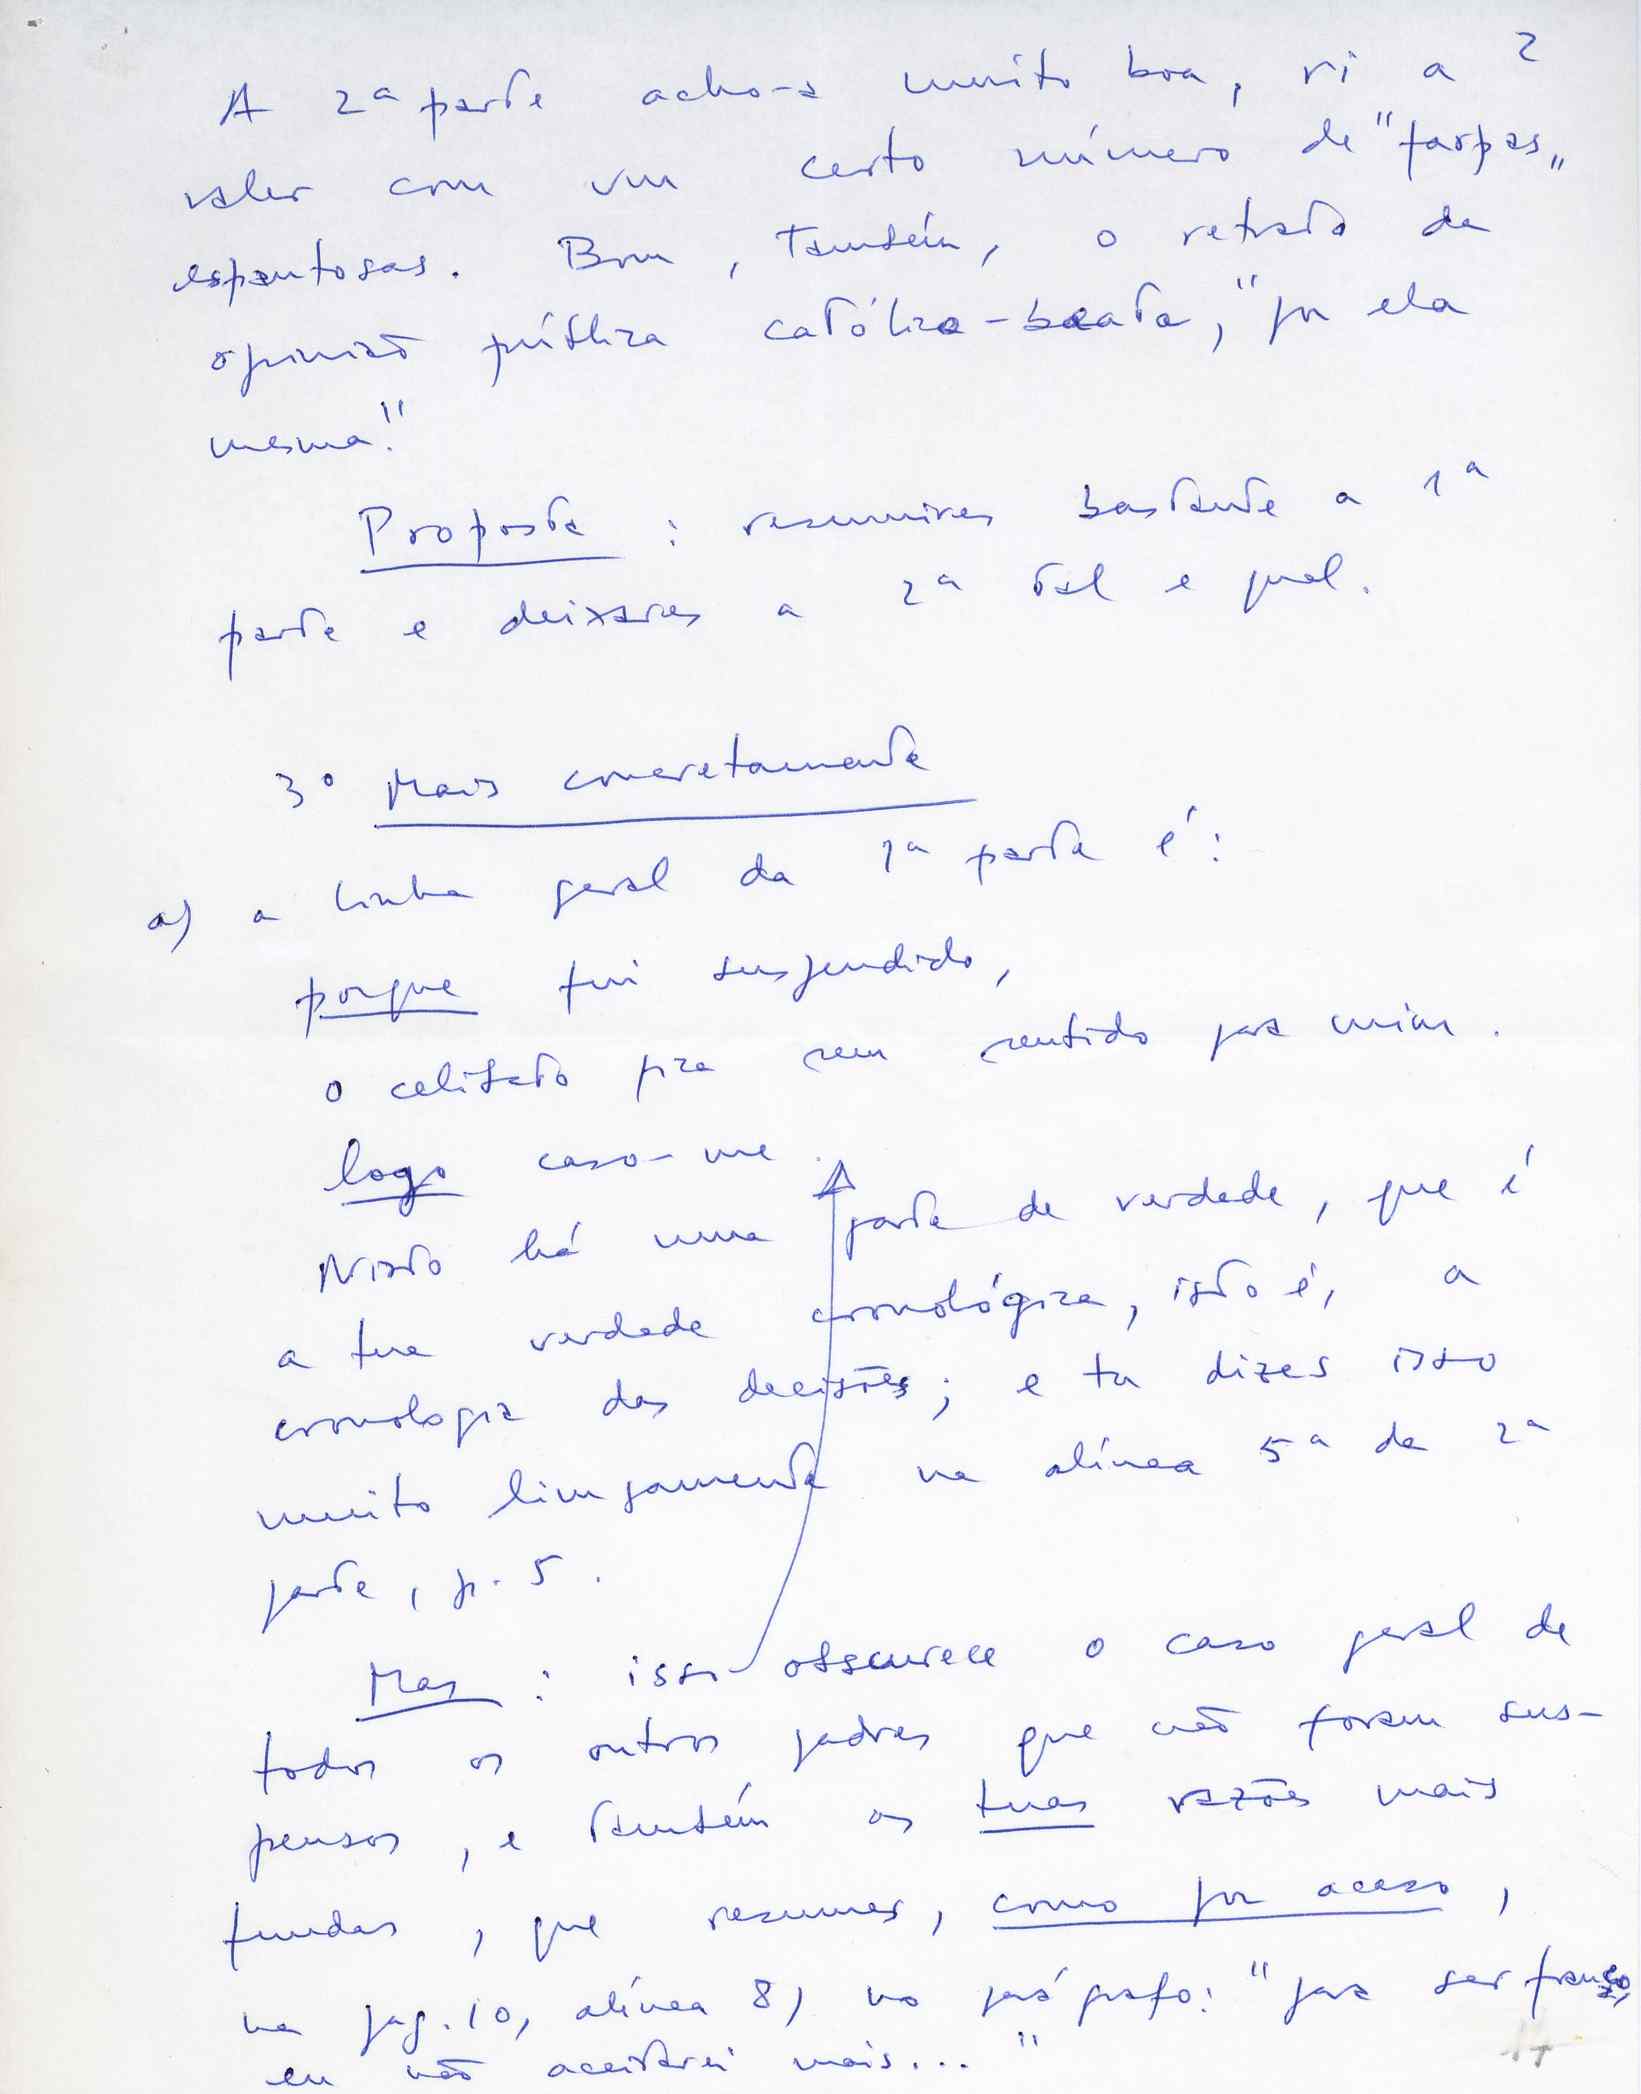 2
A 2ª parte acho-a muito boa, ri a
valer com um certo número de "farpas"
espantosas. Bom, também, o retrato da
opinião pública católica-beata, "por ela
mesma!"
Proposta : resumires bastante a 1ª
parte e deixares a 2ª tal e qual.
3º Mais concretamente
a) a linha geral da 1ª parte é:
porque fui suspendido,
o celibato fica sem sentido para mim.
logo caso-me.
Nisto há uma parte de verdade, que é
a tua verdade cronológica, isto é, a
cronologia das decisões; e tu dizes isso
muito limpamente na alínea 5ª da 2ª
parte, p. 5.
Mas : isso obscurece o caso geral de
todos os outros padres que não foram sus-
pensos, e também as tuas razões mais
fundas, que resumes, como por acaso,
na pag. 10, alínea 8) no parágrafo: "para ser franco,
eu não aceitarei mais..."
14